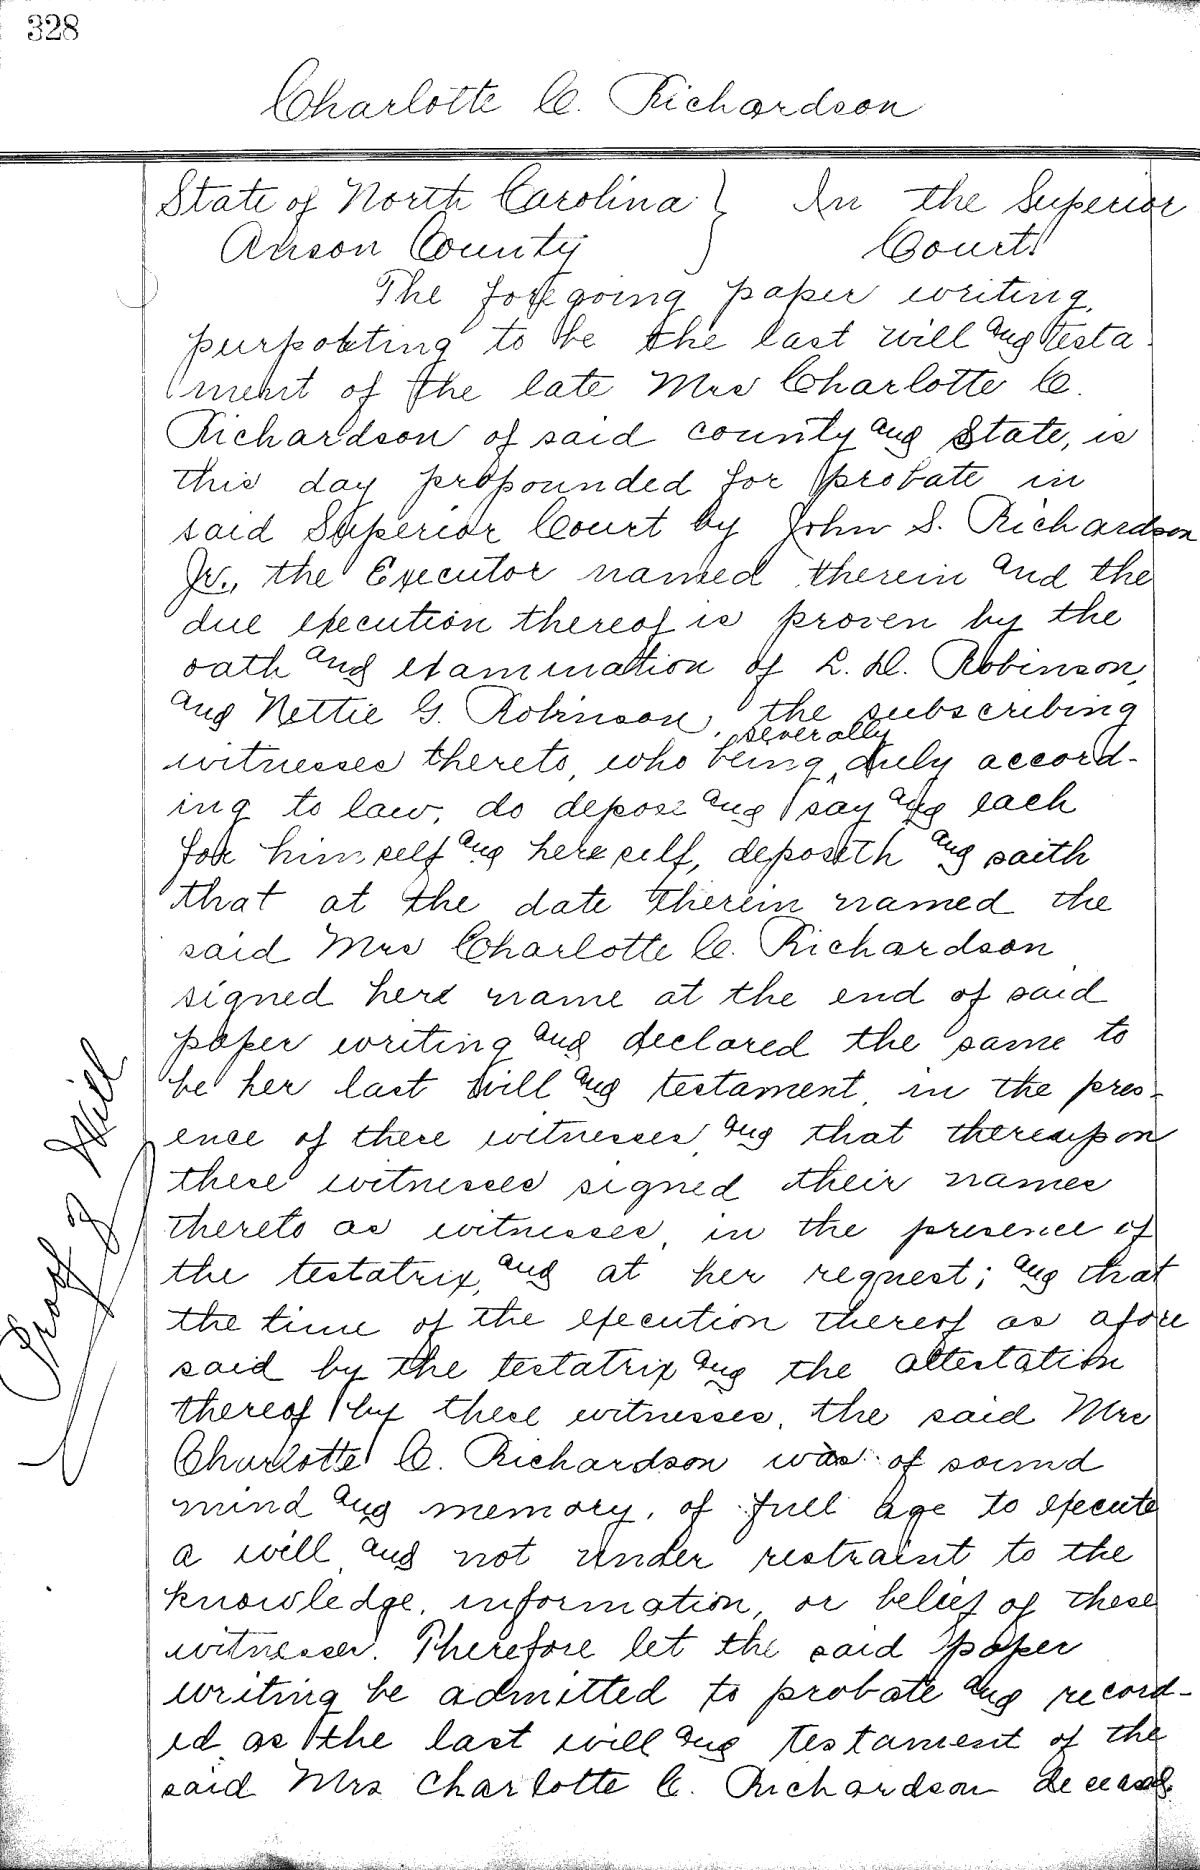 328
Charlotte C. Richardson
State of North Carolina } In the Superior
Anson County Court.
The foregoing paper writing,
purporting to be the last will and testa
ment of the late Mrs Charlotte C.
Richardson of said county and State, is
this day propounded for probate in
said Superior Court by John S. Richardson
Jr., the Executor named therein and the
due execution thereof is proven by the
oath and examination of L. D. Robinson,
and Nettie G. Robinson, the subscribing
severally
witnesses thereto, who being duly accord-
ing to law, do depose and say and each
for himself and herself, deposeth and saith
that at the date therein named the
said Mrs Charlotte C. Richardson
signed here name at the end of said
paper writing and declared the same to
be her last will and testament, in the pres-
ence of these witnesses, and that thereupon
these witnesses signed their names
thereto as witnesses, in the presence of
the testatrix, and at her request; and that
the time of the execution thereof as afore
said by the testatrix and the attestation
thereof by these witnesses, the said Mrs
Charlotte C. Richardson was of sound
mind and memory, of full age to execute
a will and not under restraint to the
knowledge, information, or belief of these
witnesses. Therefore let the said paper
writing be admitted to probate and record-
ed as the last will and testament of the
said Mrs Charlotte C. Richardson deceased.
Proof of Will